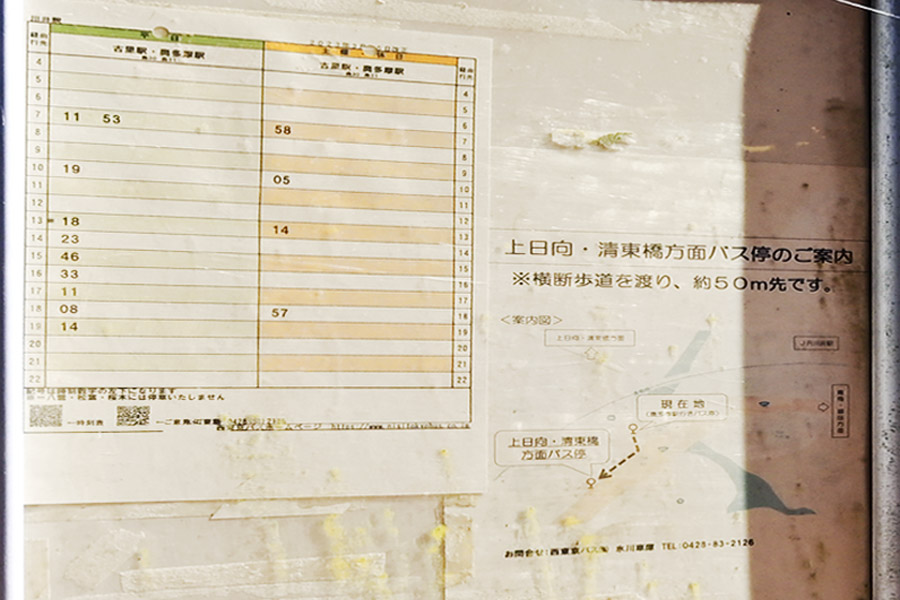 平日
土曜・休日
古里駅・奥多摩駅
古里駅・奥多摩駅
4
5
6
7 11 53
8
9
10 19
11
12
13 18
14 23
15 46
16 33
17 11
18 08
19 14
20
21
22
4
5
58 6
7
8
05 9
10
11
14 12
13
14
15
16
17
57 18
19
20
21
22
上日向・清東橋方面バス停のご案内
※横断歩道を渡り、約50m先です。
<案内図>
上日向・清東橋方面
現在地
上日向・清東橋
方面バス停
お問合せ:西東京バス㈱ 氷川車庫 TEL:0428-83-2126